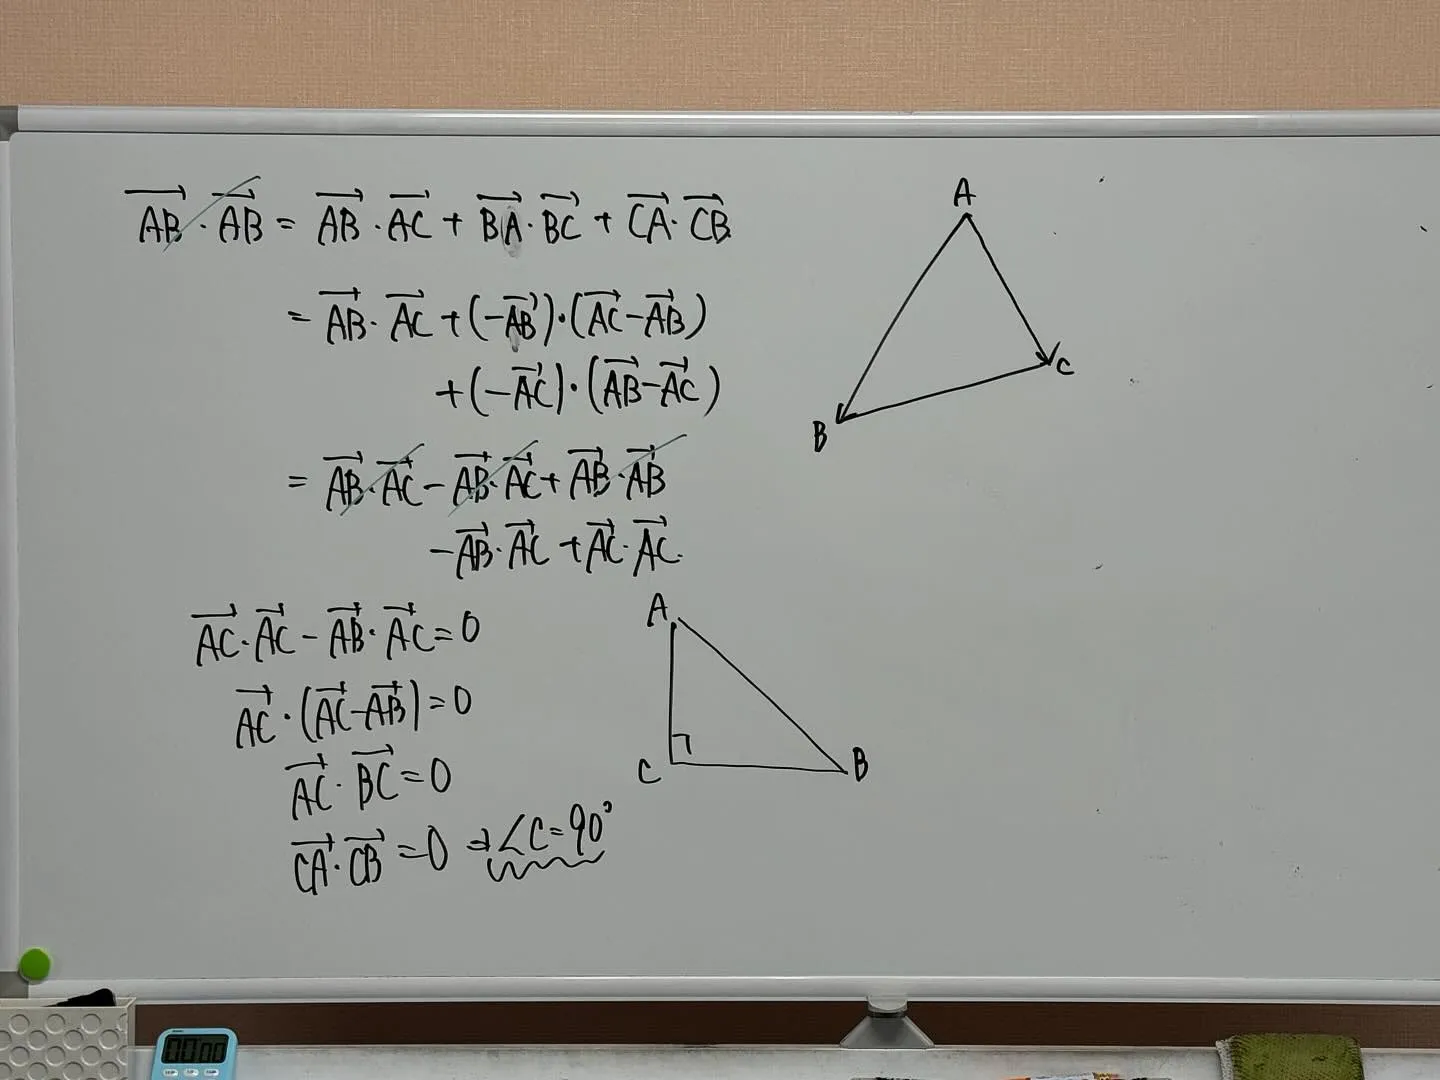 $\overrightarrow{AB} \cdot \overrightarrow{AB} = \overrightarrow{AB} \cdot \overrightarrow{AC} + \overrightarrow{BA} \cdot \overrightarrow{BC} + \overrightarrow{CA} \cdot \overrightarrow{CB}$
$= \overrightarrow{AB} \cdot \overrightarrow{AC} + (-\overrightarrow{AB}) \cdot (\overrightarrow{AC} - \overrightarrow{AB})$
$+ (-\overrightarrow{AC}) \cdot (\overrightarrow{AB} - \overrightarrow{AC})$
$= \overrightarrow{AB} \cdot \overrightarrow{AC} - \overrightarrow{AB} \cdot \overrightarrow{AC} + \overrightarrow{AB} \cdot \overrightarrow{AB}$
$- \overrightarrow{AB} \cdot \overrightarrow{AC} + \overrightarrow{AC} \cdot \overrightarrow{AC}.$
$\overrightarrow{AC} \cdot \overrightarrow{AC} - \overrightarrow{AB} \cdot \overrightarrow{AC} = 0$
$\overrightarrow{AC} \cdot (\overrightarrow{AC} - \overrightarrow{AB}) = 0$
$\overrightarrow{AC} \cdot \overrightarrow{BC} = 0$
$\overrightarrow{CA} \cdot \overrightarrow{CB} = 0 \Rightarrow \angle C = 90^\circ$
A
B
C
A
C
B
00 00